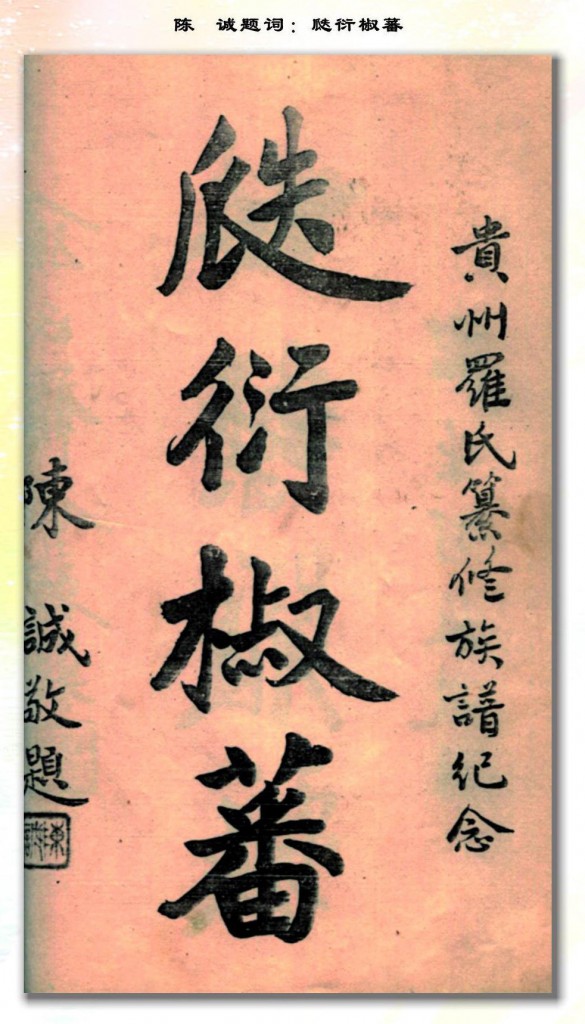 陈　诚题词：瓞衍椒蕃
貴州羅氏纂修族譜紀念
瓞衍椒蕃
陳　誠敬題